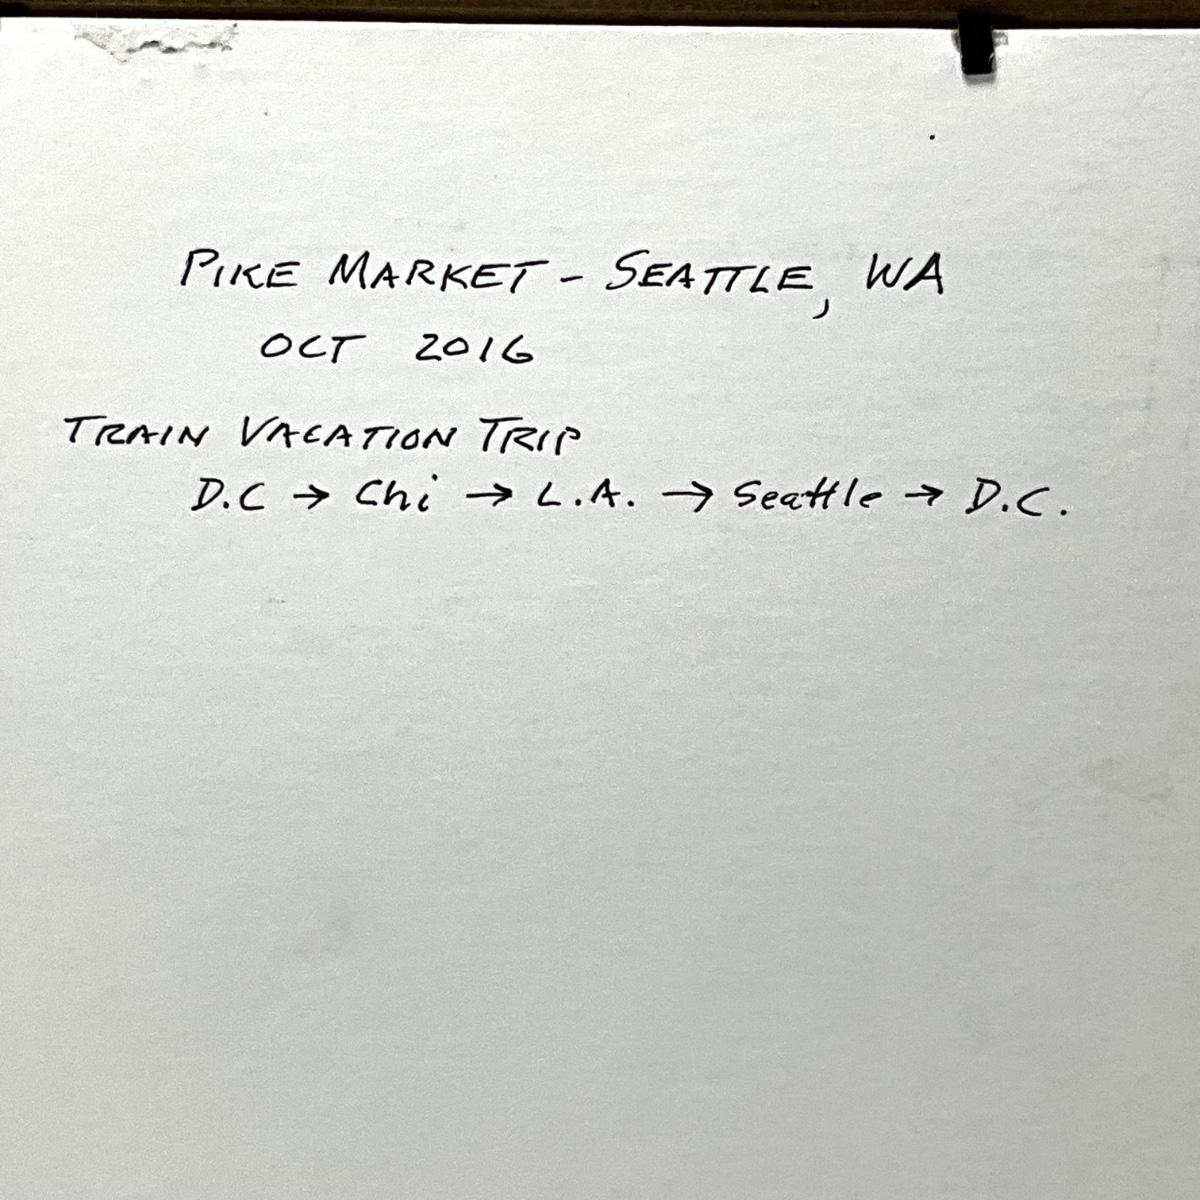 PIKE MARKET - SEATTLE, WA
OCT 2016
TRAIN VACATION TRIP
D.C → Chi → L.A. → Seattle → D.C.